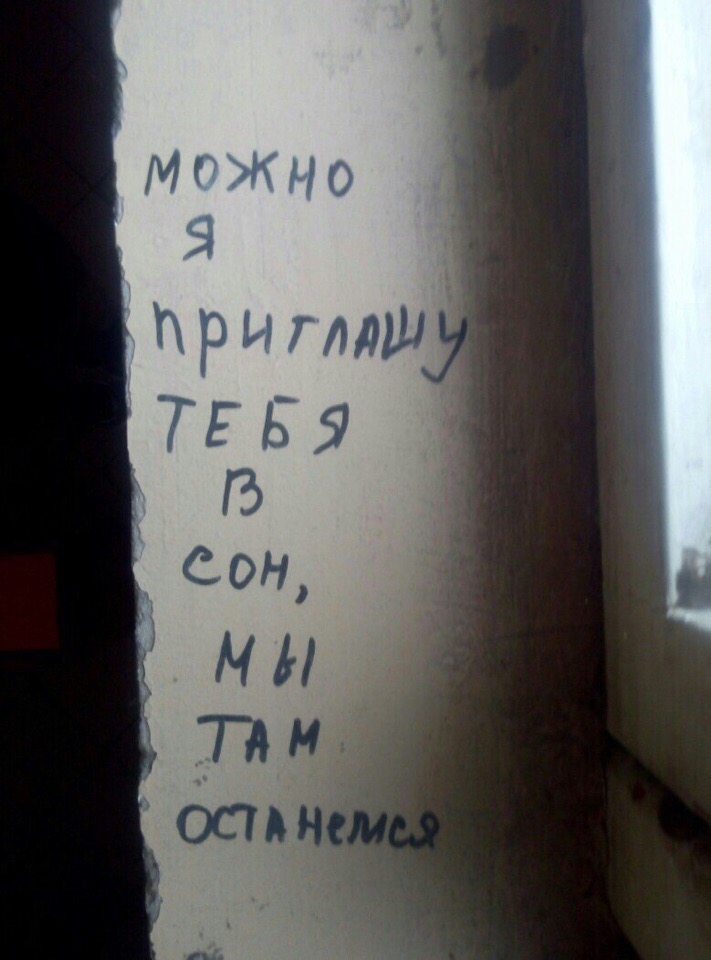 можно
я
приглашу
ТЕБЯ
В
сон,
мы
ТАМ
останемся